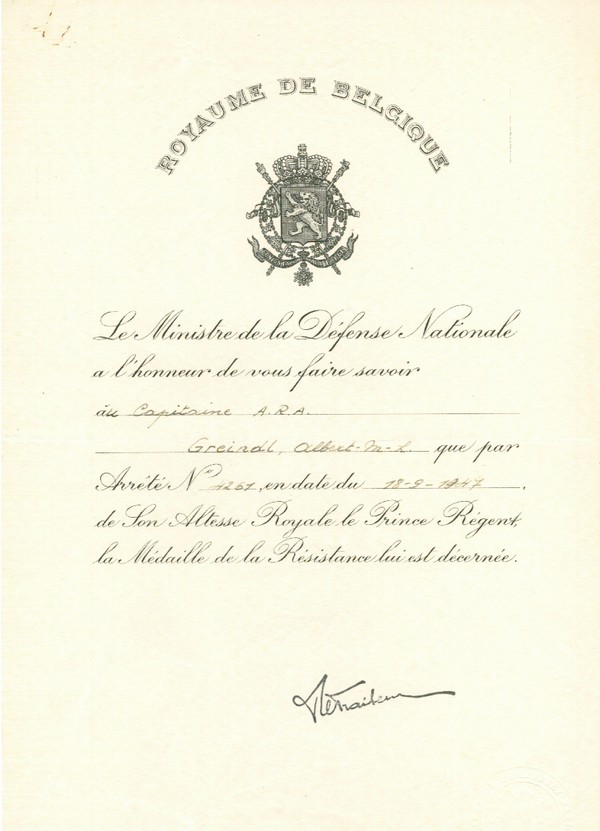 ROYAUME DE BELGIQUE
Le Ministre de la Défense Nationale
a l'honneur de vous faire savoir
au Capitaine A.R.A.
Greindl, Albert-M-L. que par
Arrêté N° 1261, en date du 18-9-1947,
de Son Altesse Royale le Prince Régent,
la Médaille de la Résistance lui est décernée.